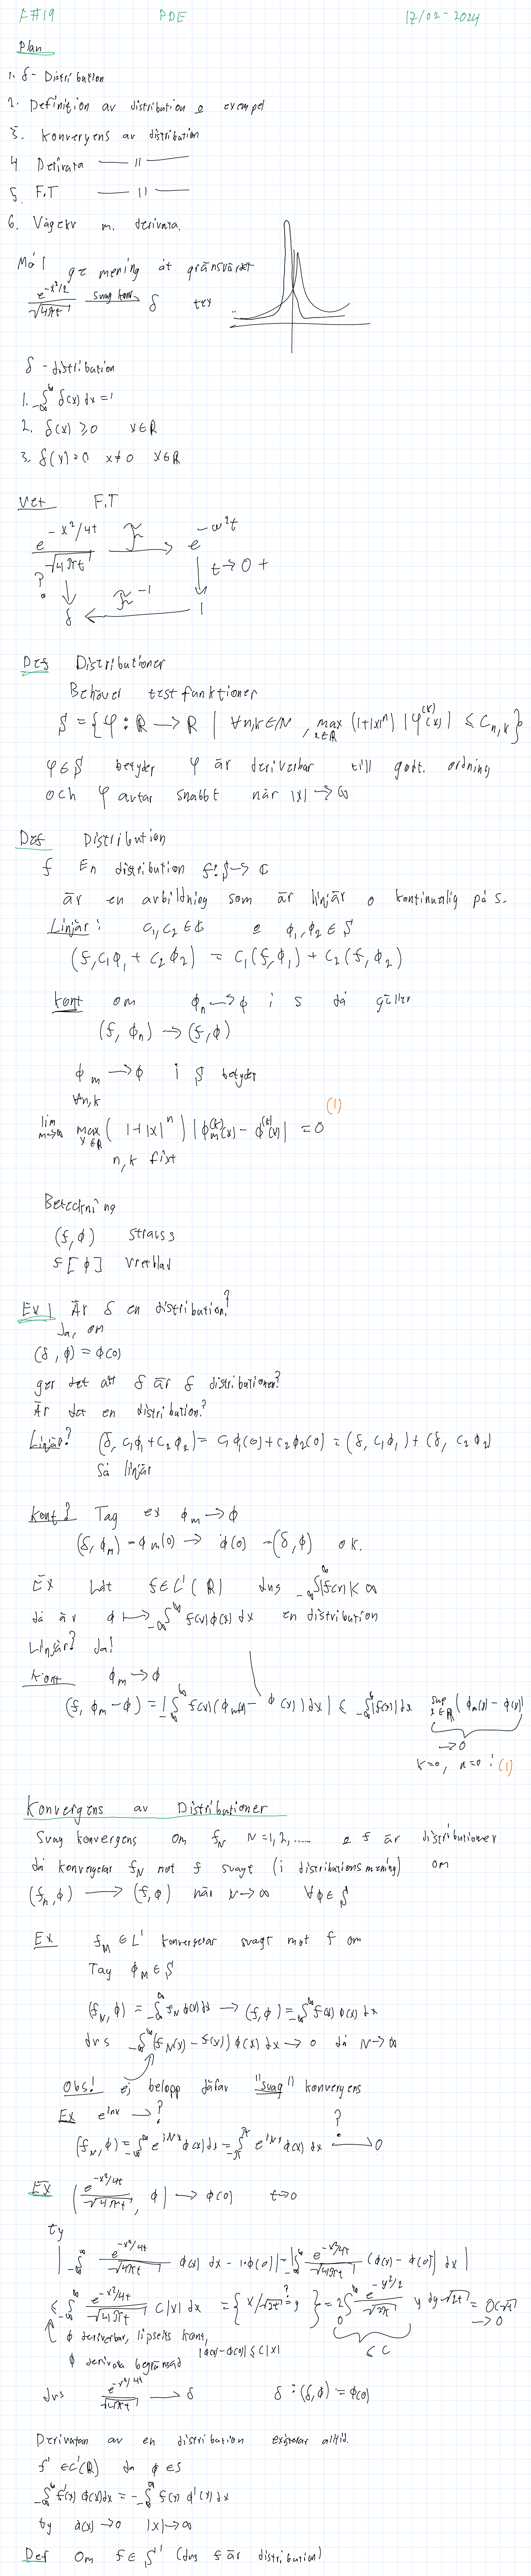 F#19 PDE 12/02-2024
Plan
1. δ-Distribution
2. Definition av distribution o exempel
3. Konvergens av distribution
4. Derivata — 11 —
5. F.T — 11 —
6. Vågekv m. derivata.
Mål ge mening åt gränsvärdet
e^{-x²/2} / √(4πt) svag konv. → δ tex
δ-distribution
1. ∫_{-∞}^{∞} δ(x) dx = 1
2. δ(x) ≥ 0 x∈ℝ
3. δ(x)=0 x≠0 x∈ℝ
Vet F.T
e^{-x²/4t} / √(4πt) →^{F} e^{-ω²t}
? ↓ ↓ t→0+
δ ←^{F^{-1}} 1
Def Distributioner
Behöver testfunktioner
S = {φ: ℝ → ℝ | ∀n,k∈ℕ, max_{x∈ℝ} (1+|x|^n) |φ^{(k)}(x)| ≤ C_{n,k}}
φ∈S betyder φ är deriverbar till godt. ordning
och φ avtar snabbt när |x| → ∞
Def Distribution
f En distribution f: S → ℂ
är en avbildning som är linjär o kontinuerlig på S.
Linjär: c₁, c₂ ∈ ℂ o ϕ₁, ϕ₂ ∈ S
(f, c₁ϕ₁ + c₂ϕ₂) = c₁(f,ϕ₁) + c₂(f,ϕ₂)
Kont om ϕ_n → ϕ i S då gäller
(f, ϕ_n) → (f, ϕ)
ϕ_m → ϕ i S betyder
∀n,k
lim_{m→∞} max_{x∈ℝ} (1+|x|^n) |ϕ_m^{(k)}(x) - ϕ^{(k)}(x)| = 0 (1)
n, k fixt
Beteckning
(f, ϕ) Strauss
f[ϕ] Vretblad
Ex 1 Är δ en distribution?
Ja, om
(δ, ϕ) = ϕ(0)
ger det att δ är δ distributionen?
Är det en distribution?
Linjär? (δ, c₁ϕ₁ + c₂ϕ₂) = c₁ϕ₁(0) + c₂ϕ₂(0) = (δ, c₁ϕ₁) + (δ, c₂ϕ₂)
Så linjär
Kont? Tag ex ϕ_m → ϕ
(δ, ϕ_m) = ϕ_m(0) → ϕ(0) = (δ, ϕ) ok.
Ex Låt f∈L¹(ℝ) dvs ∫_{-∞}^{∞} |f(x)| < ∞
då är ϕ ↦ ∫_{-∞}^{∞} f(x)ϕ(x) dx en distribution
Linjär? Ja!
Kont ϕ_m → ϕ
(f, ϕ_m - ϕ) = |∫_{-∞}^{∞} f(x)(ϕ_m(x) - ϕ(x)) dx| ≤ ∫_{-∞}^{∞} |f(x)| dx sup_{x∈ℝ} |ϕ_m(x) - ϕ(x)|
→ 0
k=0, n=0 i (1)
Konvergens av Distributioner
Svag konvergens om f_N N=1,2,..... o f är distributioner
då konvergerar f_N mot f svagt (i distributionsmening) om
(f_n, ϕ) → (f, ϕ) när N→∞ ∀ϕ∈S
Ex f_M ∈ L¹ konvergerar svagt mot f om
Tag ϕ_M ∈ S
(f_N, ϕ) = ∫_{-∞}^{∞} f_N ϕ(x) dx → (f, ϕ) = ∫_{-∞}^{∞} f(x) ϕ(x) dx
dvs ∫_{-∞}^{∞} (f_N(x) - f(x)) ϕ(x) dx → 0 då N→∞
Obs! ej belopp därav "svag" konvergens
Ex e^{inx} → ?
(f_N, ϕ) = ∫_{-∞}^{∞} e^{iNx} ϕ(x) dx = ∫_{-π}^{π} e^{iNx} ϕ(x) dx →^{?} 0
Ex (e^{-x²/4t} / √(4πt), ϕ) → ϕ(0) t→0
ty
|∫_{-∞}^{∞} e^{-x²/4t} / √(4πt) ϕ(x) dx - 1·ϕ(0)| = |∫_{-∞}^{∞} e^{-x²/4t} / √(4πt) (ϕ(x) - ϕ(0)) dx|
≤ ∫_{-∞}^{∞} e^{-x²/4t} / √(4πt) C|x| dx = {x/√2t =^{?} y} = 2∫_0^{∞} e^{-y²/2} / √2π y dy √2t = O(√t) → 0
≤ C
ϕ deriverbar, lipschitz kont, |ϕ(x) - ϕ(0)| ≤ C|x|
ϕ derivata begränsad
dvs e^{-x²/4t} / √(4πt) → δ δ: (δ, ϕ) = ϕ(0)
Derivatan av en distribution existerar alltid.
f' ∈ C¹(ℝ) då ϕ∈S
∫_{-∞}^{∞} f'(x) ϕ(x) dx = -∫_{-∞}^{∞} f(x) ϕ'(x) dx
ty ϕ(x) → 0 |x| → ∞
Def Om f∈S' (dvs f är distribution)